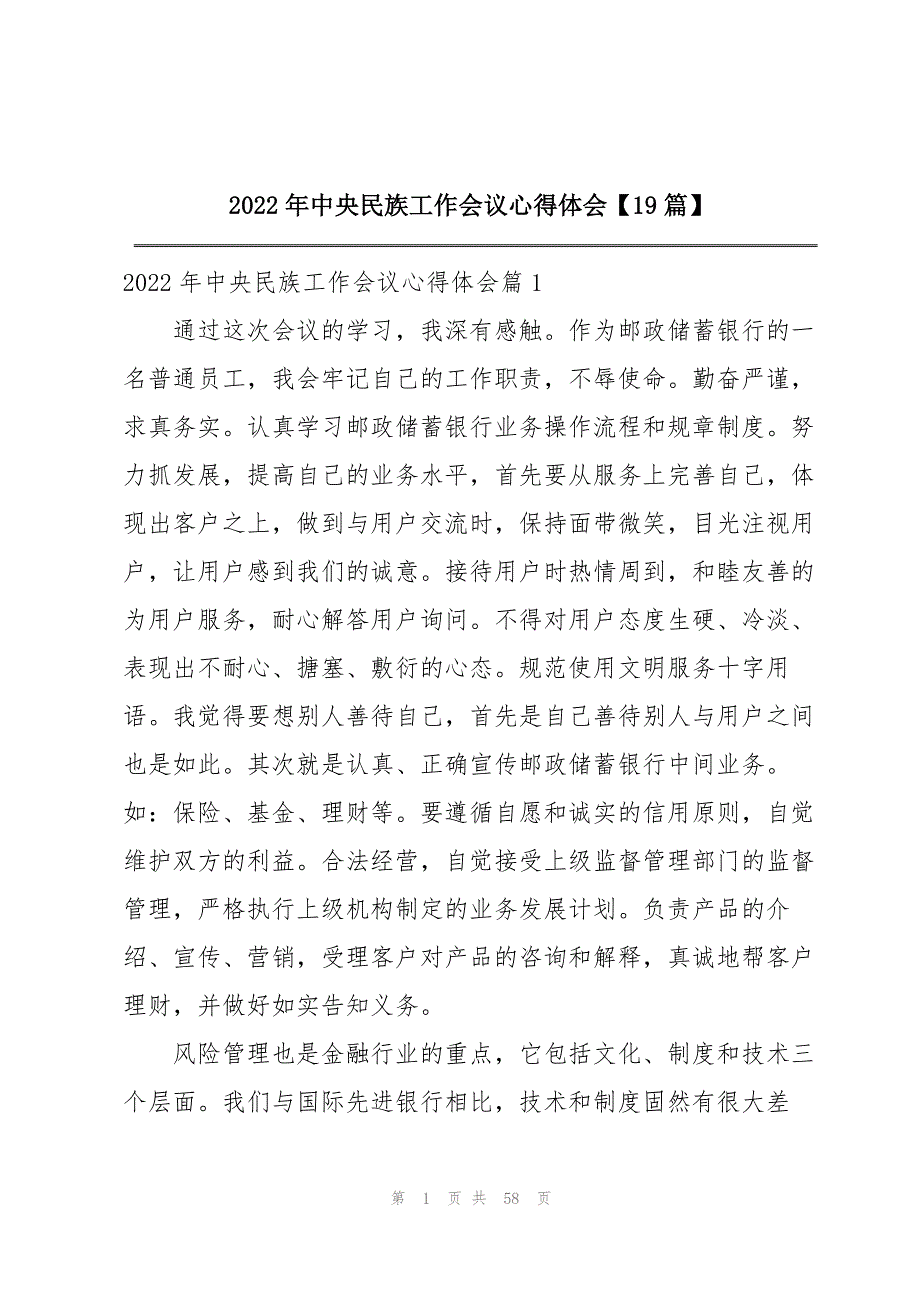 2022 年中央民族工作会议心得体会【19 篇】
2022 年中央民族工作会议心得体会篇 1
通过这次会议的学习，我深有感触。作为邮政储蓄银行的一
名普通员工，我会牢记自己的工作职责，不辱使命。勤奋严谨，
求真务实。认真学习邮政储蓄银行业务操作流程和规章制度。努
力抓发展，提高自己的业务水平，首先要从服务上完善自己，体
现出客户之上，做到与用户交流时，保持面带微笑，目光注视用
户，让用户感到我们的诚意。接待用户时热情周到，和睦友善的
为用户服务，耐心解答用户询问。不得对用户态度生硬、冷淡、
表现出不耐心、搪塞、敷衍的心态。规范使用文明服务十字用
语。我觉得要想别人善待自己，首先是自己善待别人与用户之间
也是如此。其次就是认真、正确宣传邮政储蓄银行中间业务。
如：保险、基金、理财等。要遵循自愿和诚实的信用原则，自觉
维护双方的利益。合法经营，自觉接受上级监督管理部门的监督
管理，严格执行上级机构制定的业务发展计划。负责产品的介
绍、宣传、营销，受理客户对产品的咨询和解释，真诚地帮客户
理财，并做好如实告知义务。
风险管理也是金融行业的重点，它包括文化、制度和技术三
个层面。我们与国际先进银行相比，技术和制度固然有很大差
第 1 页 共 58 页